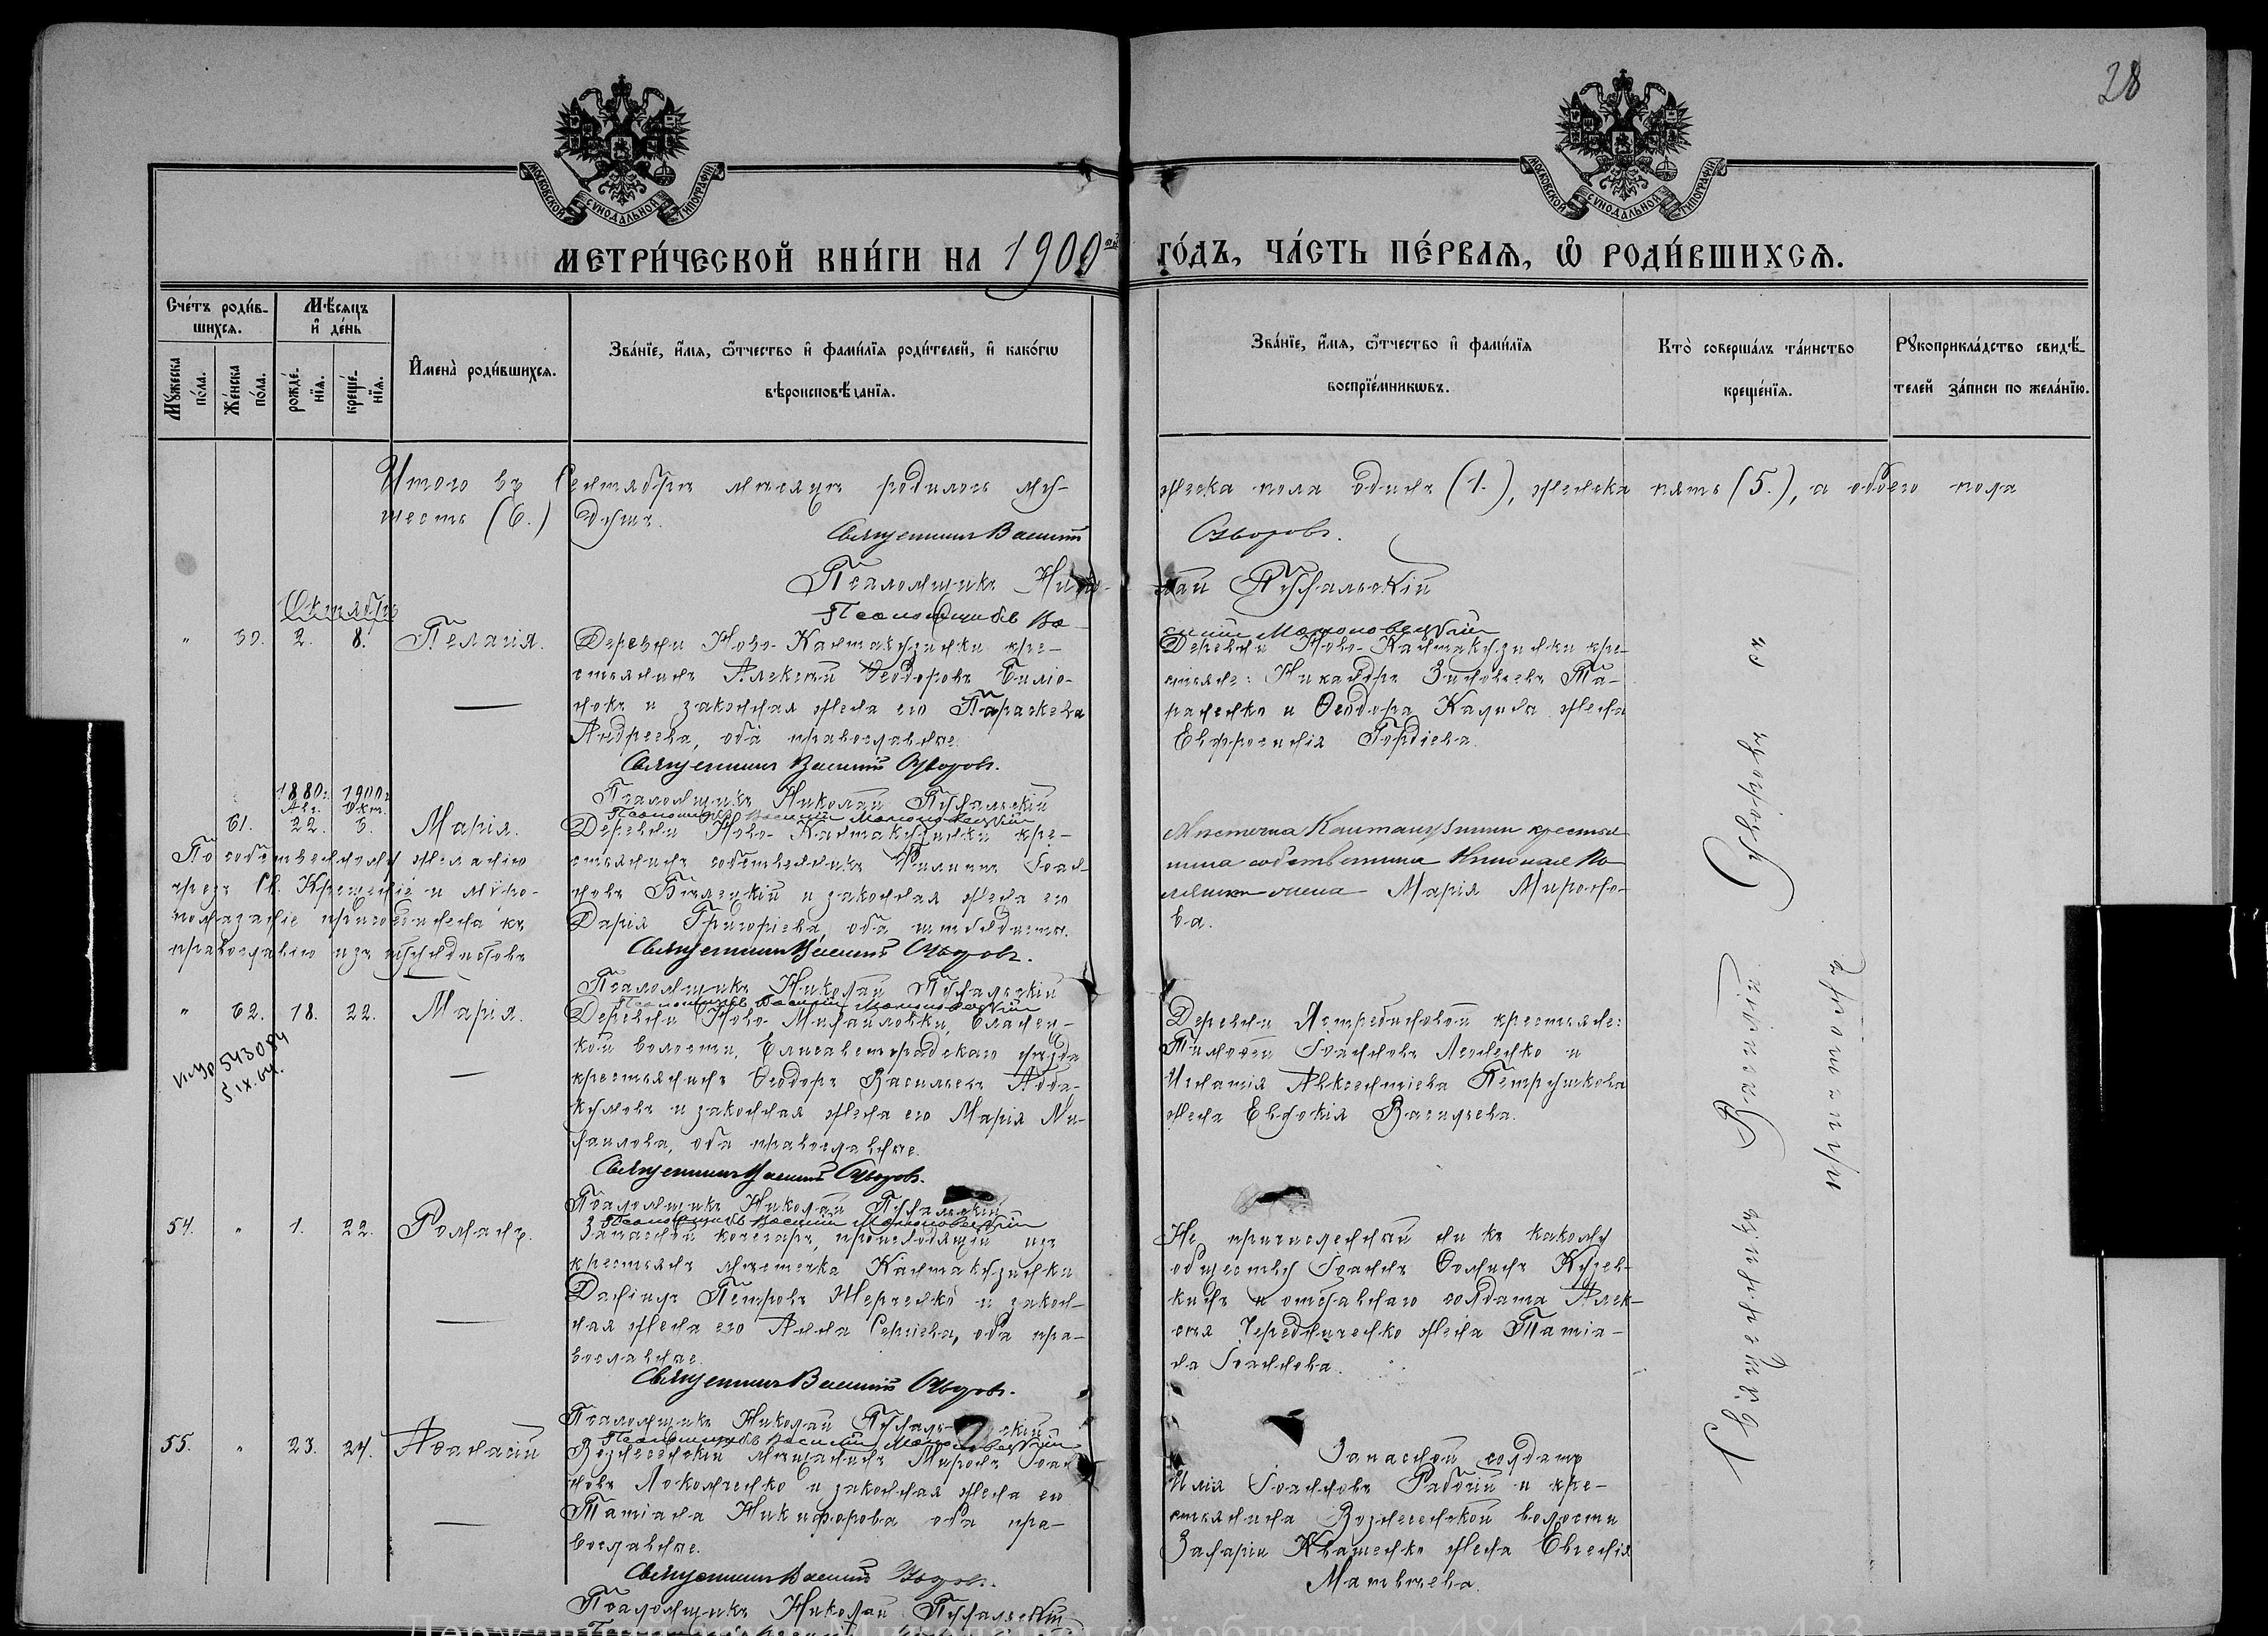 28
МОСКОВСКОЙ СѴНОДАЛЬНОЙ ТИПОГРАФІИ
МОСКОВСКОЙ СѴНОДАЛЬНОЙ ТИПОГРАФІИ
МЕТРИ́ЧЕСКОЙ КНИ́ГИ НА 1900ый ГО́ДЪ, ЧА́СТЬ ПЕ́РВАѦ, Ѡ РОДИ́ВШИХСѦ.
Сче́тъ роди́в-
шихсѧ.
Мꙋ́жеска
по́ла.
Же́нска
по́ла.
Мѣ́сѧцъ
и҆ де́нь
рожде́-
нїѧ.
креще́-
нїѧ.
И҆мена̀ роди́вшихсѧ.
Зва́нїе, и҆́мѧ, ѻ҆́тчество и҆ фами́лїѧ роди́телей, и҆ како́гѡ
вѣроисповѣ́данїѧ.
Зва́нїе, и҆́мѧ, ѻ҆́тчество и҆ фами́лїѧ
воспрїе́мникѡвъ.
Кто̀ соверша́лъ та́инство
креще́нїѧ.
Рꙋкоприкла́дство свидѣ́-
телей за́писи по жела́нїю.
Итого въ Сентябрѣ мѣсяцѣ родилось му- жеска пола одинъ (1.), женска пять (5.), а обоего пола
шесть (6.) душъ.
Священникъ Василій Суворовъ.
Псаломщикъ Николай Пухальскій
Псаломщикъ Ва-
силій
Октябрь
" 2. 8. Пелагія.
Деревни Ново-Кантакузинки кре-
стьянинъ Алексѣй Ѳеодоровъ
и законная жена его Параскева
Андреева, оба православные.
Священникъ Василій Суворовъ.
Псаломщикъ Николай Пухальскій
Деревни Ново-Кантакузинки кре-
стьяне: Никандръ Зиновьевъ Та-
раненко и Ѳеодора Калина жена
Евфросинія Гордіева.
1880г. 1900г.
Авг. Окт.
61. 22. Марія.
По собственному желанію
чрезъ Св. Крещеніе и мѵро-
помазаніе присоединена къ
православію изъ штундистовъ
Псаломщикъ Василій
Деревни Ново-Кантакузинки кре-
стьянинъ собственникъ Филиппъ Іоан-
новъ Бѣлецкій и законная жена его
Дарія Григоріева, оба штундисты.
Священникъ Василій Суворовъ.
Псаломщикъ Николай Пухальскій
Мѣстечка Кантакузинки крестья-
нина собственника Николая
жена Марія Мироно-
ва.
" 62. 18. 22. Марія.
543084
5 IX.64.
Псаломщикъ Василій
Деревни Ново-Михайловки,
кой волости, Елисаветградскаго уѣзда
крестьянинъ Ѳеодоръ Васильевъ Абба-
кумовъ и законная жена его Марія Ми-
хайлова, оба православные.
Священникъ Василій Суворовъ.
Псаломщикъ Николай Пухальскій
Деревни Ястребиновой крестьяне:
Тимоѳей Іоанновъ Леоненко и
Игнатія Авксентіева Петрушкова
жена Евдокія Васильева.
54. " 1. 22. Романъ.
Псаломщикъ Василій
Запасный кочегаръ, происходящій изъ
крестьянъ мѣстечка Кантакузинки
Даніилъ Петровъ Шерченко и закон-
ная жена его Анна Сергіева, оба пра-
вославные.
Священникъ Василій Суворовъ.
Псаломщикъ Николай Пухальскій
Не причисленный ни къ какому
обществу Іоаннъ Ѳоминъ
и отставнаго солдата Алек-
сѣя Чередниченко жена Татіа-
на Іоаннова.
55. " 23. 24. Аѳанасій
Псаломщикъ Василій
Вознесенскій мѣщанинъ Миронъ Іоан-
новъ Локотченко и законная жена его
Татіана Никифорова оба пра-
вославные.
Священникъ Василій Суворовъ.
Псаломщикъ Николай Пухальскій
Запасный солдатъ
Илія Іоанновъ Рабочій и кре-
стьянина Вознесенской волости
Захарія Квашенко жена Евгенія
Матвѣева.
Священникъ Василій Суворовъ съ
псаломщикомъ
Державний архів Миколаївської області, ф.484, оп.1, спр.433